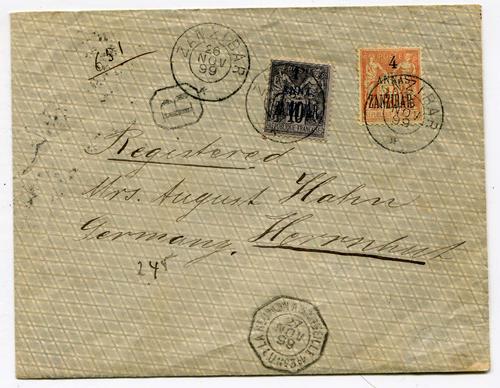 651
ZANZIBAR
26
NOV
99
R
1
ANNA
10
4
ANNAS
ZANZIBAR
ZANZIBAR
NOV
99
Registered
Mrs. August Hahn
Germany, Herrnhut
27
NOV
99